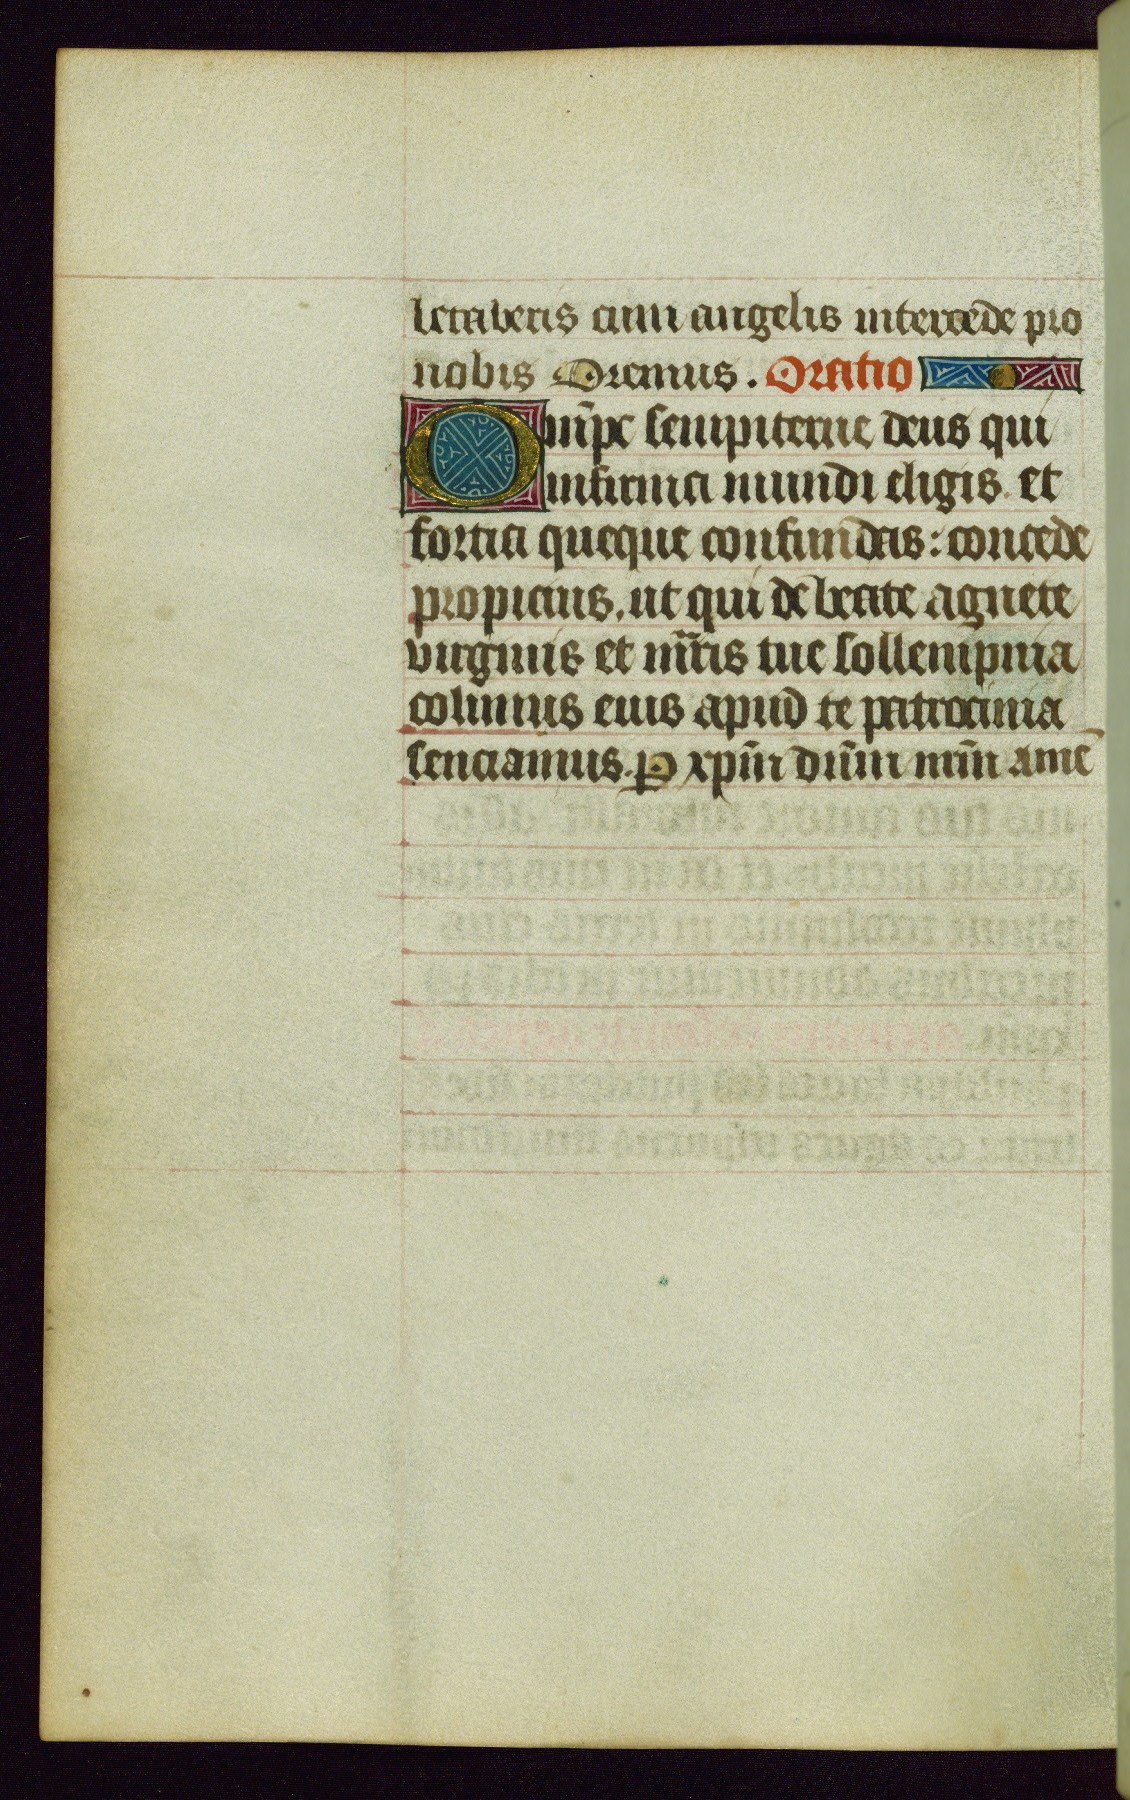 letaberis cum angelis intercede pro
nobis Oremus. Oratio
Om̄ps sempiterne deus qui
infirma mundi eligis et
fortia queque confundas: concede
propicius, ut qui de beate agnete
virginis et mr̄is tue sollempnia
colimus eius apud te patrocinia
senciamus. P xp̄m dn̄m nr̄m amē